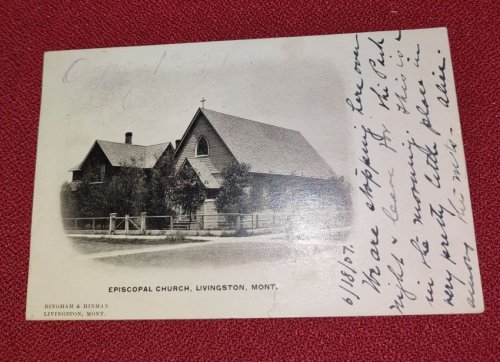 EPISCOPAL CHURCH, LIVINGSTON, MONT.
BINGHAM & HINMAN
LIVINGSTON, MONT.
6/18/07.
We are stopping here over
night & leave for the Park
in the morning. This is a
very pretty little place in
among the mts. Alice.